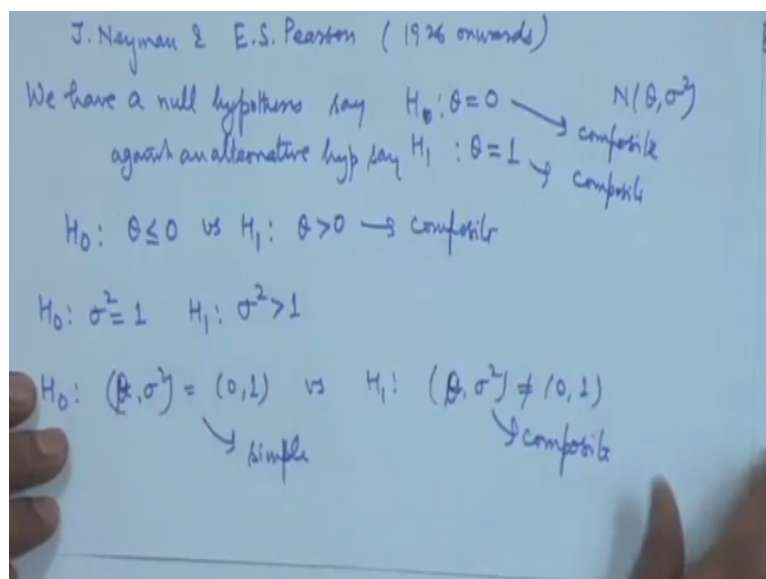 J. Neyman & E.S. Pearson (1926 onwards)
We have a null hypothesis say H₀: θ=0 → composite N(θ,σ²)
against an alternative hyp say H₁ : θ=1 → composite
H₀: θ≤0 vs H₁: θ>0 → composite
H₀: σ²=1 H₁: σ²>1
H₀: (θ,σ²) = (0,1) vs H₁: (θ,σ²) ≠ (0,1)
→ simple → composite